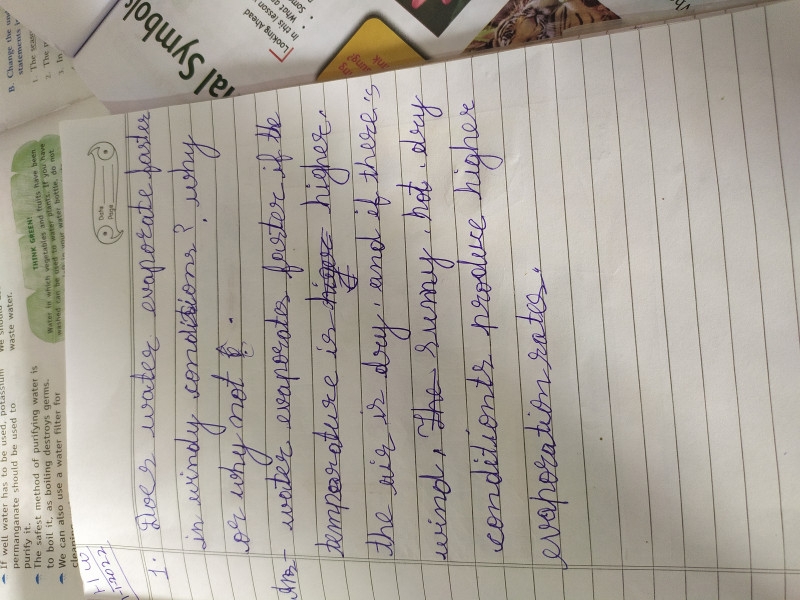 B. Change the un
statements
1. The
2. The p
3. In
THINK GREEN!
Water in which vegetables and fruits have been
washed can be used to water plants. If you have
in your water bottle, do not
waste water.
If well water has to be used, potassium
permanganate should be used to
purify it.
The safest method of purifying water is
to boil it, as boiling destroys germs.
We can also use a water filter for
al Symbols
Looking Ahead
In this lesson
What
Som
Date
Page
H W
1. Does water evaporate faster
in windy conditions? why
or why not
Ans- water evaporates faster if the
temparature is higher.
the air is dry, and if there's
wind, The sunny, hot, dry
conditionts produce higher
evaporation rates.